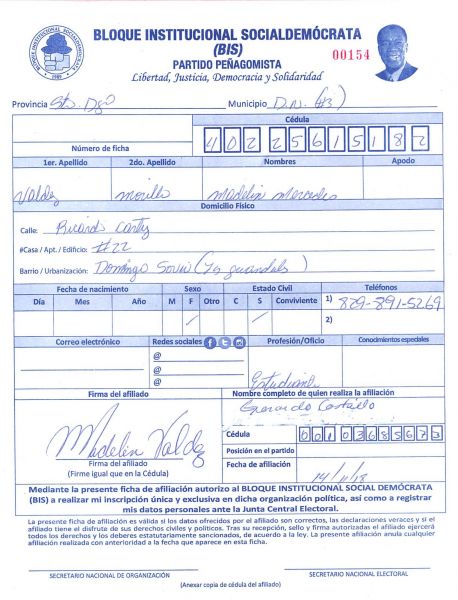 BLOQUE INSTITUCIONAL SOCIALDEMÓCRATA
(BIS)
00154
PARTIDO PEÑAGOMISTA
Libertad, Justicia, Democracia y Solidaridad
Provincia Sto. Dgo Municipio D.N. (#3)
Cédula
Número de ficha 402 2561518 2
1er. Apellido 2do. Apellido Nombres Apodo
Valdez Morillo Madelin Mercedes
Domicilio Físico
Calle: Ricardo
#Casa / Apt. / Edificio: #22
Barrio / Urbanización: Domingo Savio (Los guandules)
Fecha de nacimiento Sexo Estado Civil Teléfonos
Día Mes Año M F Otro C S Conviviente 1) 829-891-5269
2)
Correo electrónico Redes sociales Profesión/Oficio Conocimientos especiales
@
@
@
Estudiante
Firma del afiliado Nombre completo de quien realiza la afiliación
Gerardo Castillo
Madelin Valdez
Cédula 001 0368567 3
Posición en el partido
Firma del afiliado
(Firme igual que en la Cédula)
Fecha de afiliación 14/11/18
Mediante la presente ficha de afiliación autorizo al BLOQUE INSTITUCIONAL SOCIAL DEMÓCRATA
(BIS) a realizar mi inscripción única y exclusiva en dicha organización política, así como a registrar
mis datos personales ante la Junta Central Electoral.
La presente ficha de afiliación es válida si los datos ofrecidos por el afiliado son correctos, las declaraciones veraces y si el
afiliado tiene el disfrute de sus derechos civiles y políticos. Tras su recepción, sello y firma autorizadas el afiliado ejercerá
todos los derechos y los deberes estatutariamente sancionados, de acuerdo a la ley. La presente afiliación anula cualquier
afiliación realizada con anterioridad a la fecha que aparece en esta ficha.
SECRETARIO NACIONAL DE ORGANIZACIÓN SECRETARIO NACIONAL ELECTORAL
(Anexar copia de cédula del afiliado)